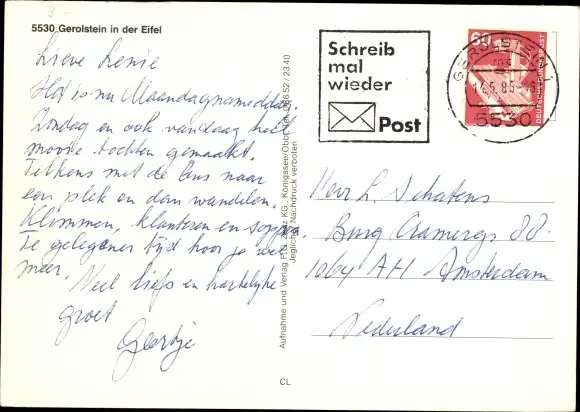 5530 Gerolstein in der Eifel
Lieve Lenie
Het is nu Maandagnamiddag.
Zondag en ook vandaag heel
mooie tochten gemaakt.
Telkens met de bus naar
een plek en dan wandelen.
Klimmen, klauteren en
Te gelegener tijd hoor je wel
meer.
Veel liefs en hartelijke
groet
Geertje
Aufnahme und Verlag KG., Königssee/Obb. Tel. 52/23 40
Jeglicher Nachdruck verboten
CL
Schreib
mal
wieder
Post
60
DEUTSCHE BUNDESPOST
GEROLSTEIN 1
5530
Herr L. Schutens
Burg Cramergs 88
1064 AH Amsterdam
Nederland